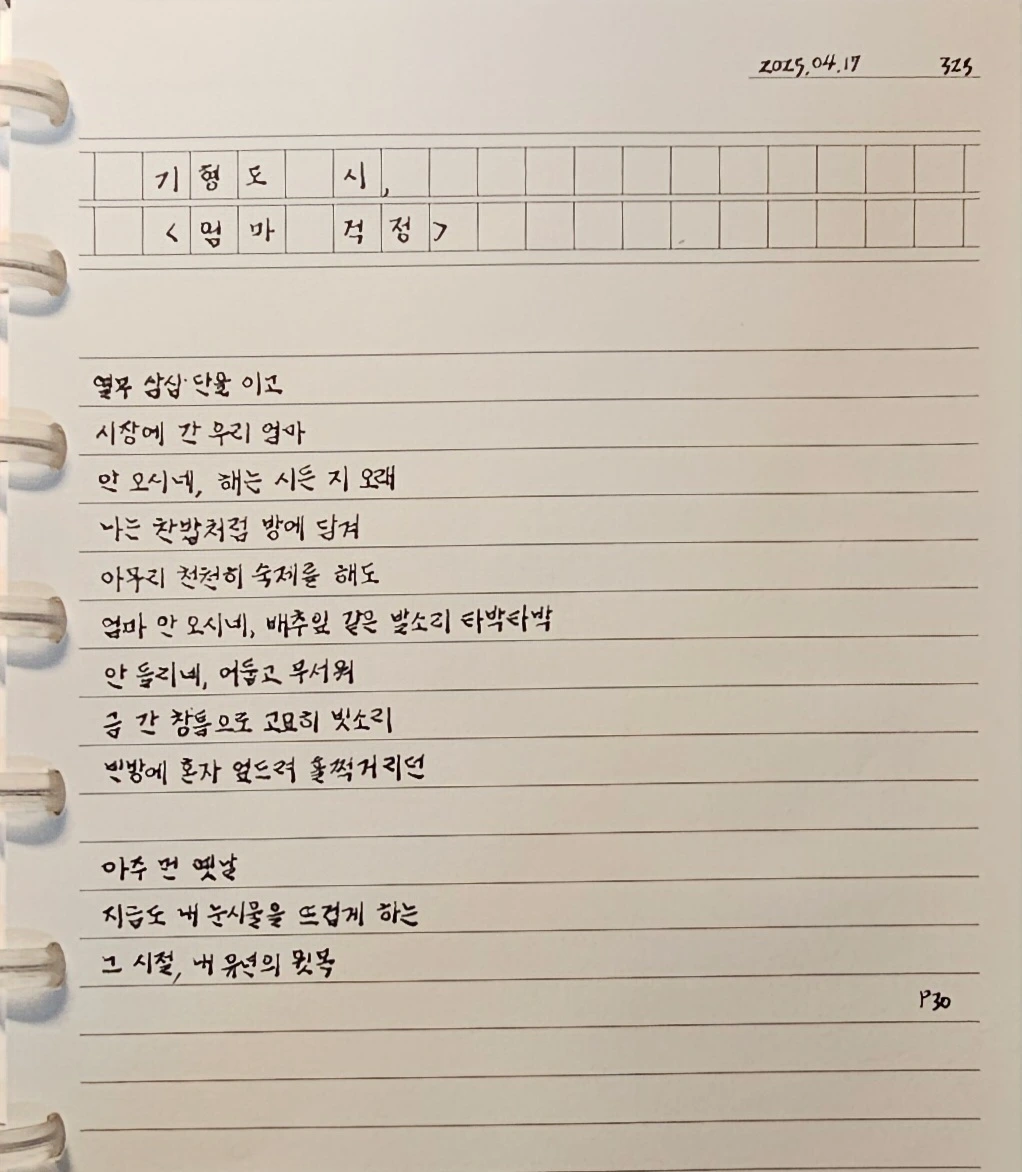 2025.04.17 325
기형도 시,
<엄마 걱정>
열무 삼십 단을 이고
시장에 간 우리 엄마
안 오시네, 해는 시든 지 오래
나는 찬밥처럼 방에 담겨
아무리 천천히 숙제를 해도
엄마 안 오시네, 배추잎 같은 발소리 타박타박
안 들리네, 어둡고 무서워
금 간 창틈으로 고요히 빗소리
빈방에 혼자 엎드려 훌쩍거리던
아주 먼 옛날
지금도 내 눈시울을 뜨겁게 하는
그 시절, 내 유년의 윗목
P30